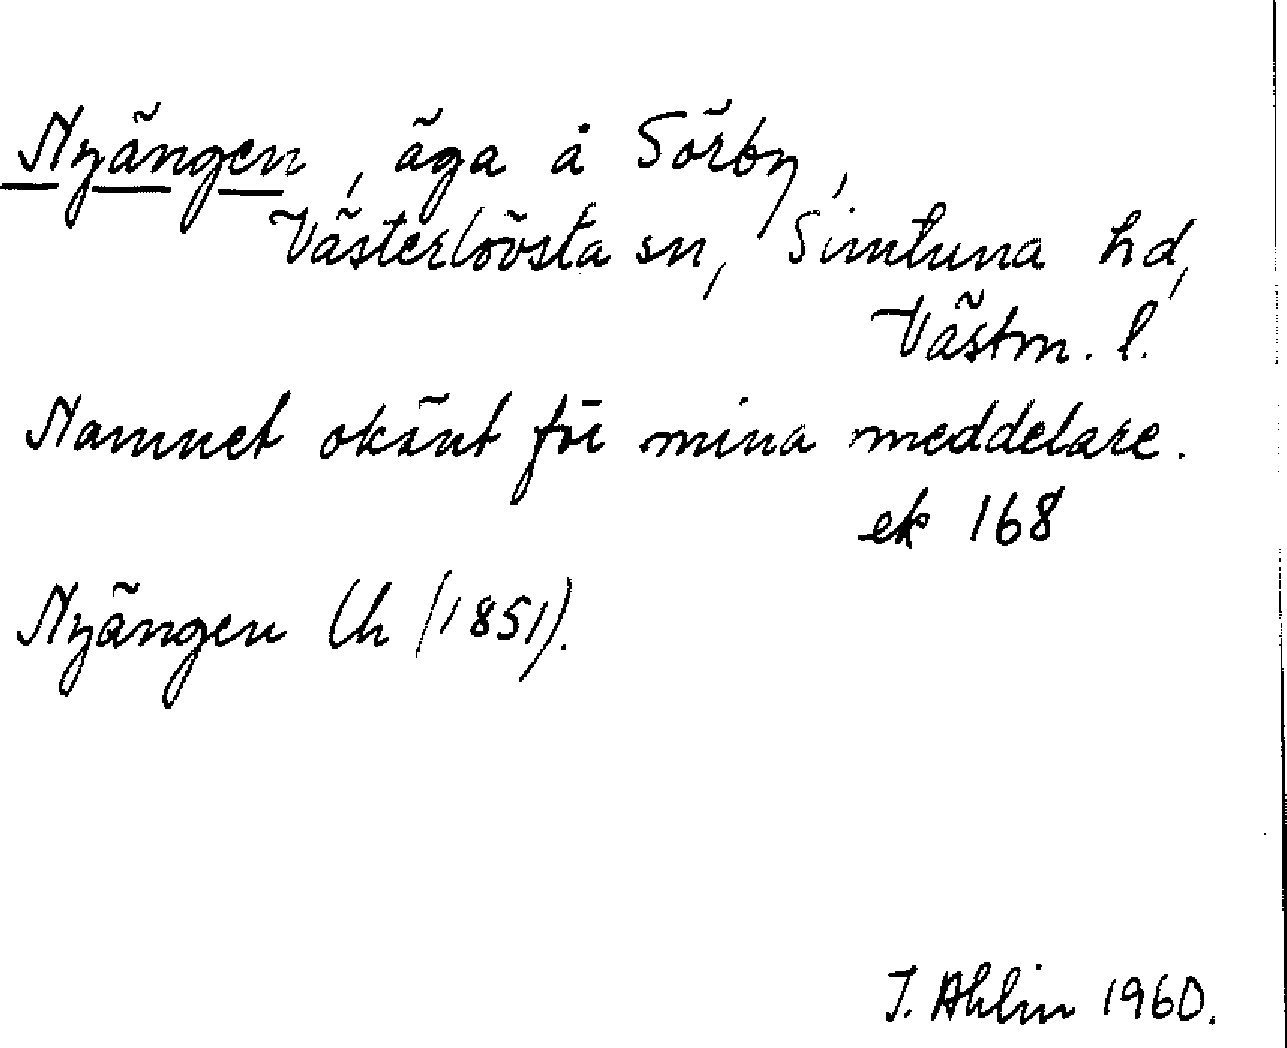 Nyängen, äga å Sörby,
Västerlövsta sn, Simtuna hd,
Västm. l.
Namnet okänt för mina meddelare.
ek 168
Nyängen Lh (1851).
I. Ahlin 1960.